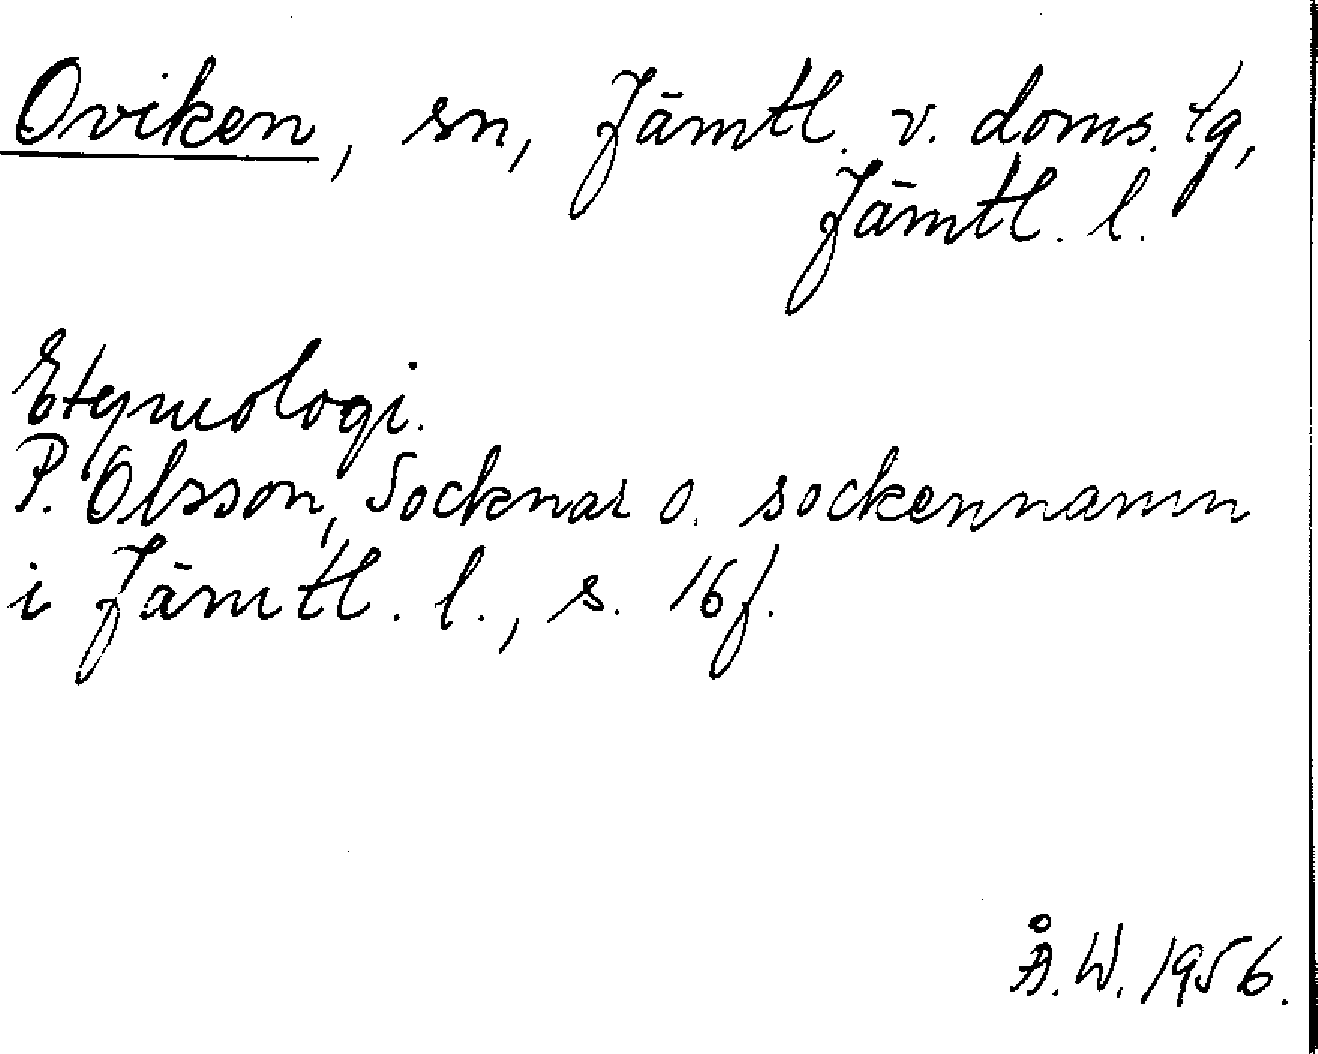 Oviken, sn, Jämtl. v. doms. tg,
Jämtl. l.
Etymologi.
P. Olsson, Socknar o. sockennamn
i Jämtl. l., s. 16f.
Å. W. 1956.